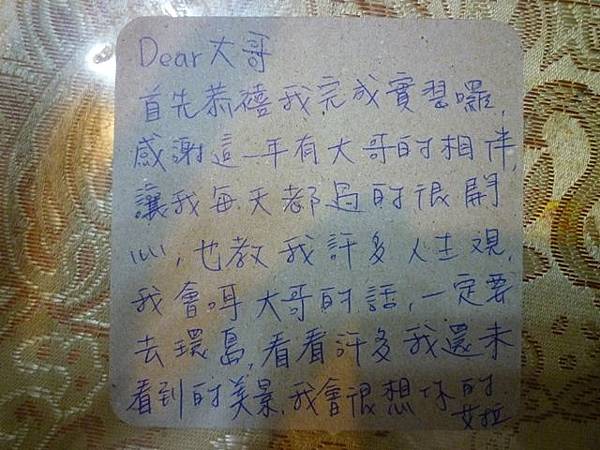 Dear大哥
首先恭禧我完成實習囉,
感謝這一年有大哥的相伴,
讓我每天都過的很開
心,也教我許多人生觀,
我會呣大哥的話,一定要
去環島,看看許多我還未
看到的美景,我會很想你的
艾拉